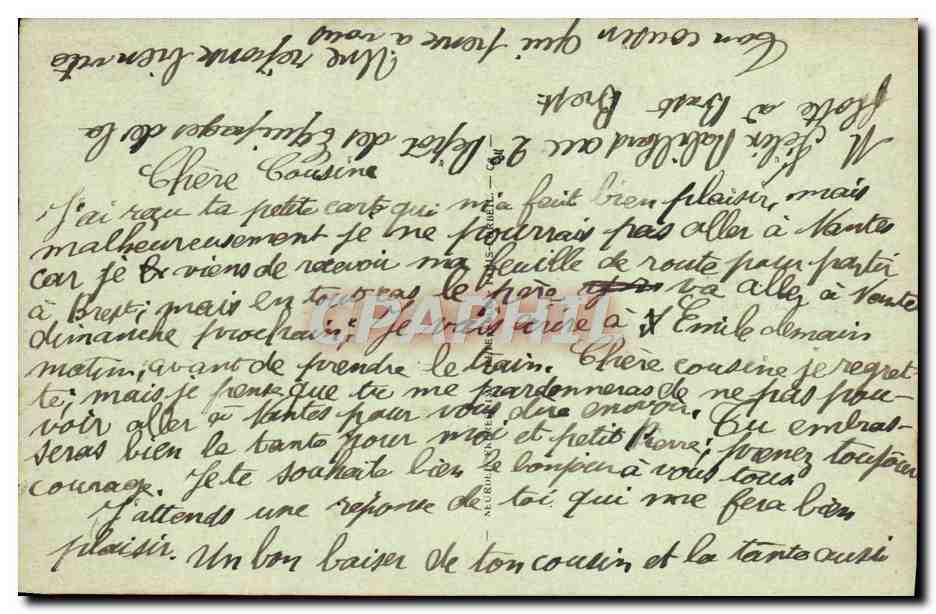 Chère Cousine
J'ai reçu ta petite carte qui m'a fait bien plaisir, mais
malheureusement je ne pourrais pas aller à Nantes
car je viens de recevoir ma feuille de route pour partir
à Brest; mais en tout cas le père va allez à Nante
dimanche prochain; je vais écrire à Emile demain
matin, avant de prendre le train. Chère cousine je regret-
te; mais je pense que tu me pardonneras de ne pas pou-
voir aller à Nantes pour vous dire
Tu embras-
seras bien la tante pour moi et petit Pierre; prenez toujour
courage. Je te souhaite bien le bonjour à vous tous
J'attends une réponse de toi qui me fera bien
plaisir. Un bon baiser de ton cousin et la tante aussi
Ton cousin qui pense a vous
Une réponse bien vite
M Félix Rabillard au 2e Dépot des Equipages de la
flotte à Brest Brest
CPAPHIL